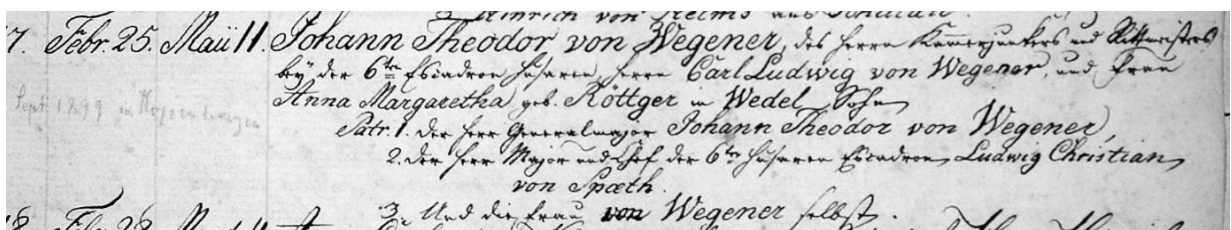 Hinrich von Helms aus
7. Febr. 25. Maii 11. Johann Theodor von Wegener, des Herrn Kammerjunkers und Rittmeisters
bey der 6ten Escadron Husaren, Herrn Carl Ludwig von Wegener, und Frau
Anna Margaretha geb. Röttger in Wedel, Sohn
Sept. 1899 in
Patr. 1. der Herr Generalmajor Johann Theodor von Wegener,
2. der Herr Major und Chef der 6ten Husaren Escadron, Ludwig Christian
von Spæth.
3. Und die Frau von Wegener selbst.
18. Febr. 28.